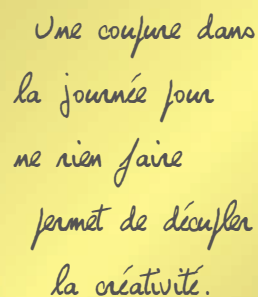 Une coupure dans
la journée pour
ne rien faire
permet de décupler
la créativité.